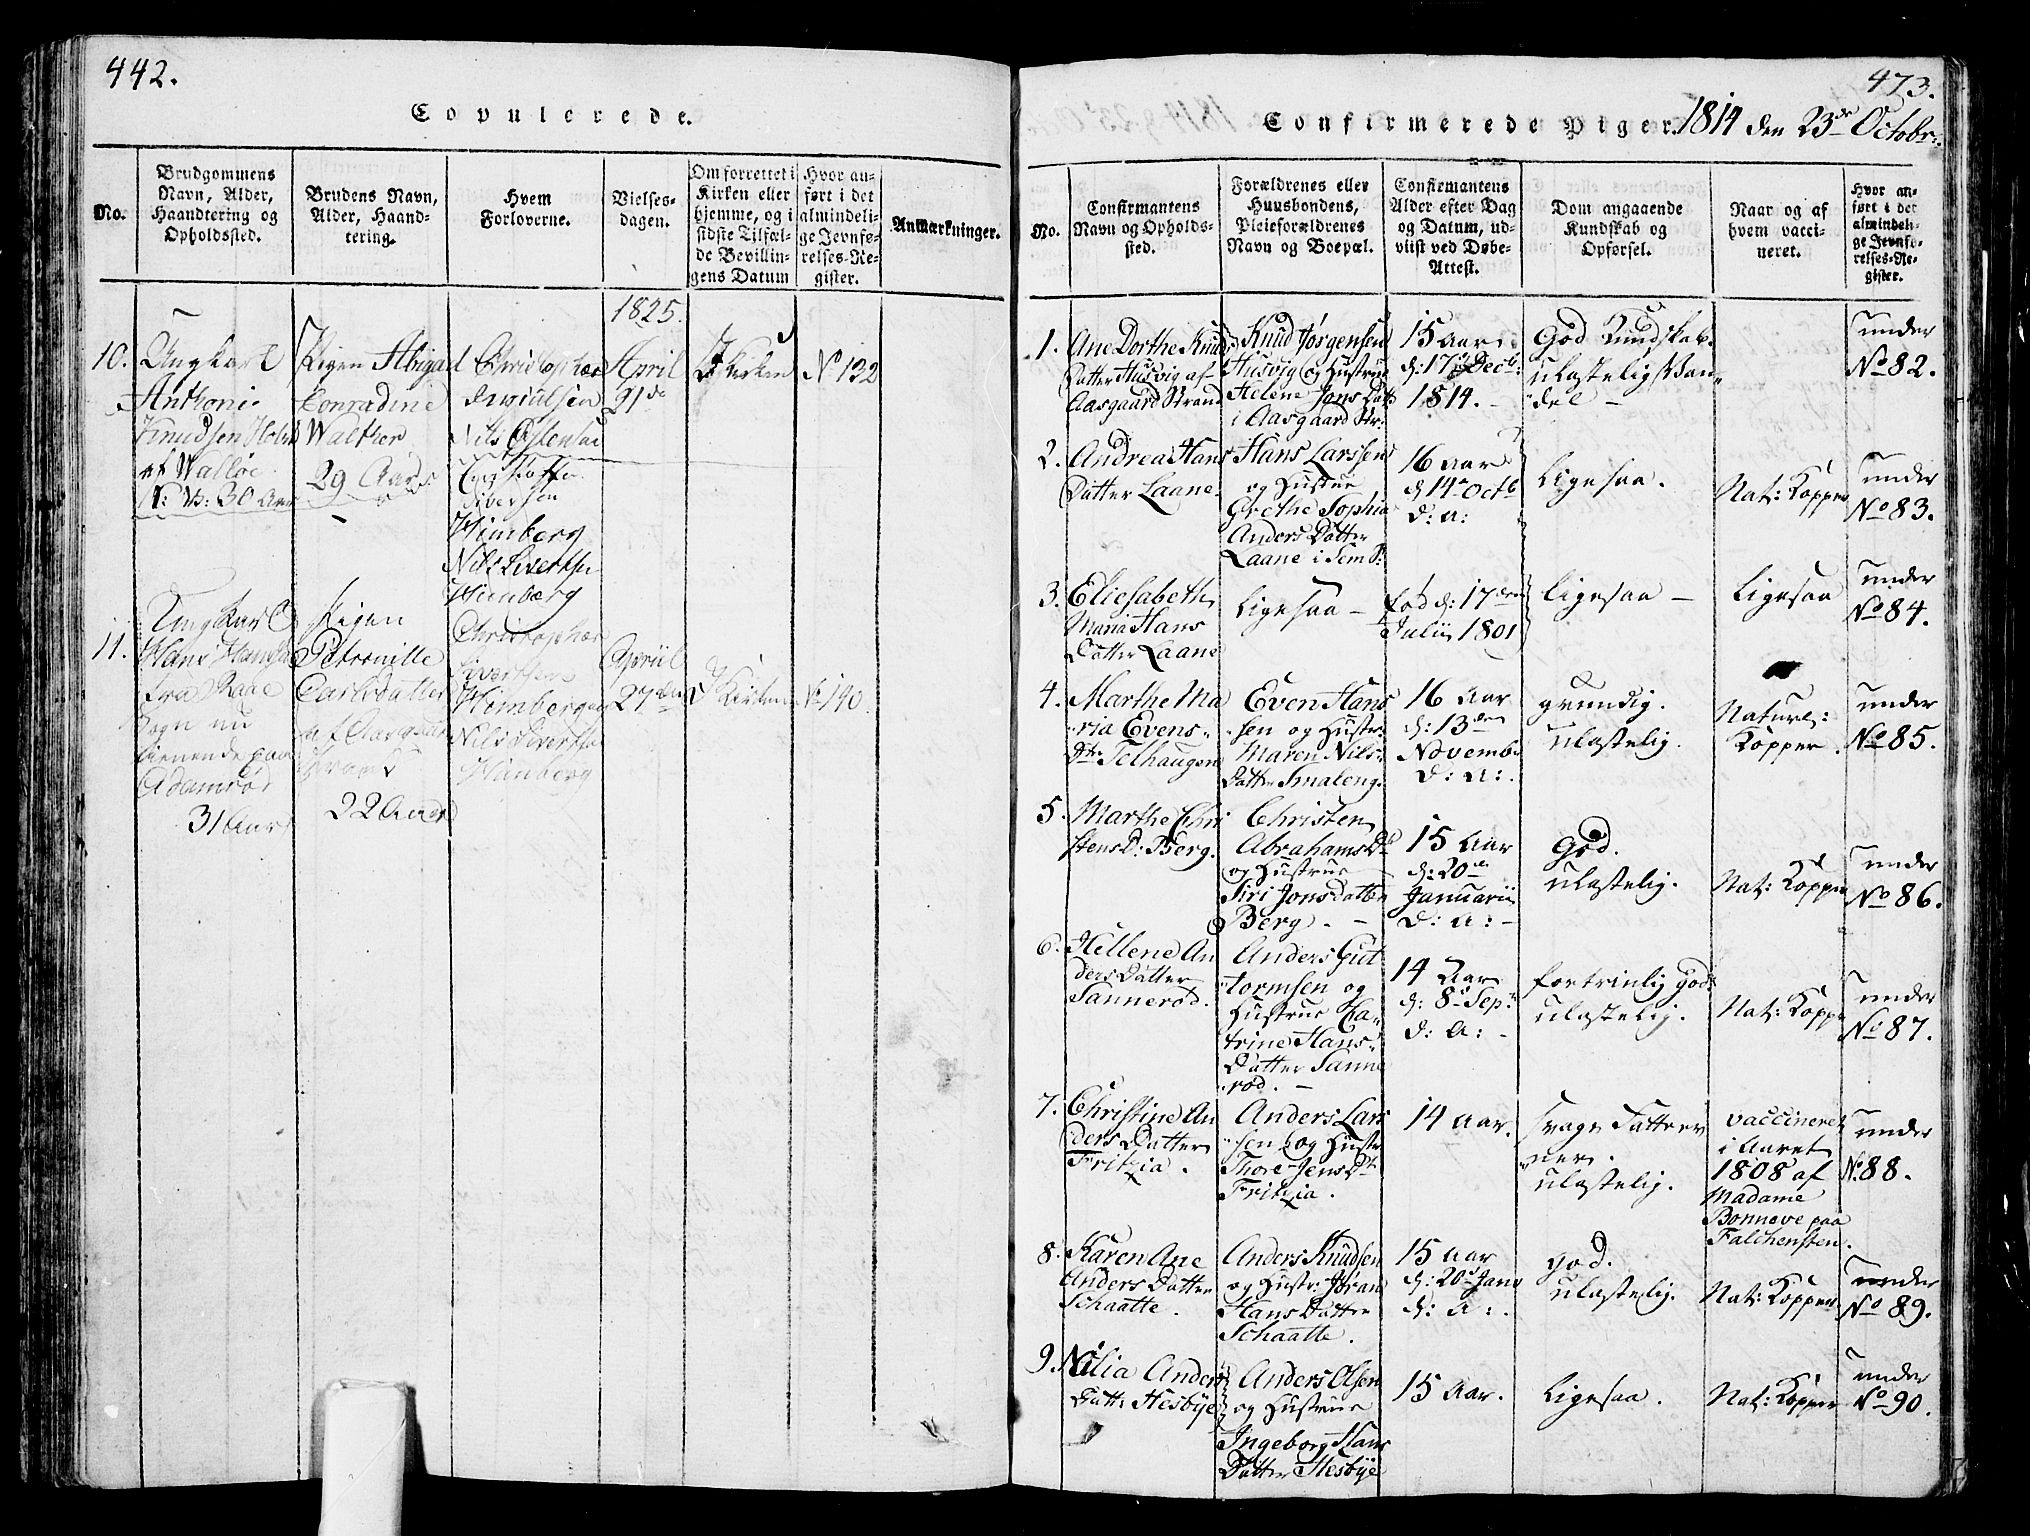 442.
Copulerede.
No.
Brudgommens
Navn, Alder,
Haandtering og
Opholdssted.
Brudens Navn,
Alder, Haand-
tering.
Hvem
Forloverne.
Vielses-
dagen.
Om forrettet i
Kirken eller
hjemme, og i
sidste Tilfæl-
de Bevillin-
gens Datum
Hvor an-
ført i det
almindeli-
ge Jevnfø-
relses-Re-
gister.
Anmærkninger.
1825.
10.
Ungkarl
Anthoni
Knudsen Holm
af Walløe
30 Aar
Pigen Abigael
Conradine
Walther
29 Aar
Christopher
Nils
Sivertsen
Himberg
Nils Sivertsen
Himberg
April
21de
Kirken
No 132
11.
Ungkarl
Hans Hansen
fra Raae
Sogn nu
tienende paa
Adamrød
31 Aar
Pigen
Petronille
Carlsdatter
af Aasgaard
Strand
22 Aar
Christopher
Sivertsen
Himberg og
Nils Sivertsen
Himberg
April
27de
Kirken
No 140
473.
Confirmerede Piger. 1814 den 23de Octobr:
No.
Confirmantens
Navn og Opholds-
sted.
Forældrenes eller
Huusbondens,
Pleieforældrenes
Navn og Boepæl.
Confirmantens
Alder efter Dag
og Datum, ud-
viist ved Døbe-
Attest.
Dom angaaende
Kundskab og
Opførsel.
Naar og af
hvem vacci-
neret.
Hvor an-
ført i det
almindeli-
ge Jevnfø-
relses-Re-
gister.
1.
Ane Dorthe Knuds
Datter Husvig af
Aasgaard Strand
Knud Jørgensen
Husvig og Hustrue
Helene Jens Datt
i Aasgaard Str:
15 Aar
d: 17 Decb:
1814. -
God Kundskab.
ulastelig Van-
del -
under
No 82.
2.
Andrea Hans
Datter Laane.
Hans Larssen
og Hustrue
Grethe Sophia
Anders Datter
Laane i Sem P:
16 Aar
d 14 Octb
d: a:
Ligesaa.
Nat: Kopper
under
No 83.
3.
Eliesabeth
Maria Hans
Datter Laane
Ligesaa -
fød d: 17den
Julii 1801
Ligesaa -
Ligesaa
under
No 84.
4.
Marthe Ma
ria Evens-
Dtr Telhaugen
Even Hans
sen og Hustr:
Maren Nils-
Datter Smaleng.
16 Aar
d: 13den
Novemb
d: a:.
grundig.
ulastelig.
Naturl:
Kopper.
under
No 85.
5.
Marthe Chri
stens D: Berg.
Christen
Abrahams
og Hustrue
Siri Jonsdatter
Berg. -
15 Aar
d: 20de
Januarii
d: a: -
God.
ulastelig.
Nat: Kopper
under
No 86.
6.
Hellene An
ders Datter
Sannerød.
Anders Gut
tormsen og
Hustrue Ca-
trine Hans-
Datter Sanne
rød. -
14 Aar
d: 8 Sep:
d: a: -
fortrinlig God:
ulastelig.
Nat: Kopper
under
No 87.
7.
Christine An
ders Datter
Fritzia.
Anders Lars
sen og Hustr
Thore Jens Dt
Fritzia.
14 Aar.
svage Fatteev
ner.
ulastelig.
vaccineret
i Aaret
1808 af
Madame
Bonneve paa
Falchensten.
under
No 88.
8.
Karen Ane
Anders Datter
Schaatte.
Anders Knudsen
og Hustr: Jøran
Hans Datter
Schaatte.
15 Aar
d: 20 Janv
d: a:.
god.
ulastelig.
Nat: Kopper.
under
No 89.
9.
Nilia Anders
Datt: Hesbye
Anders Olsen
og Hustrue
Ingeborg Hans
Datter Hesbye
15 Aar.
Ligesaa.
Nat: Kopper
under
No 90.